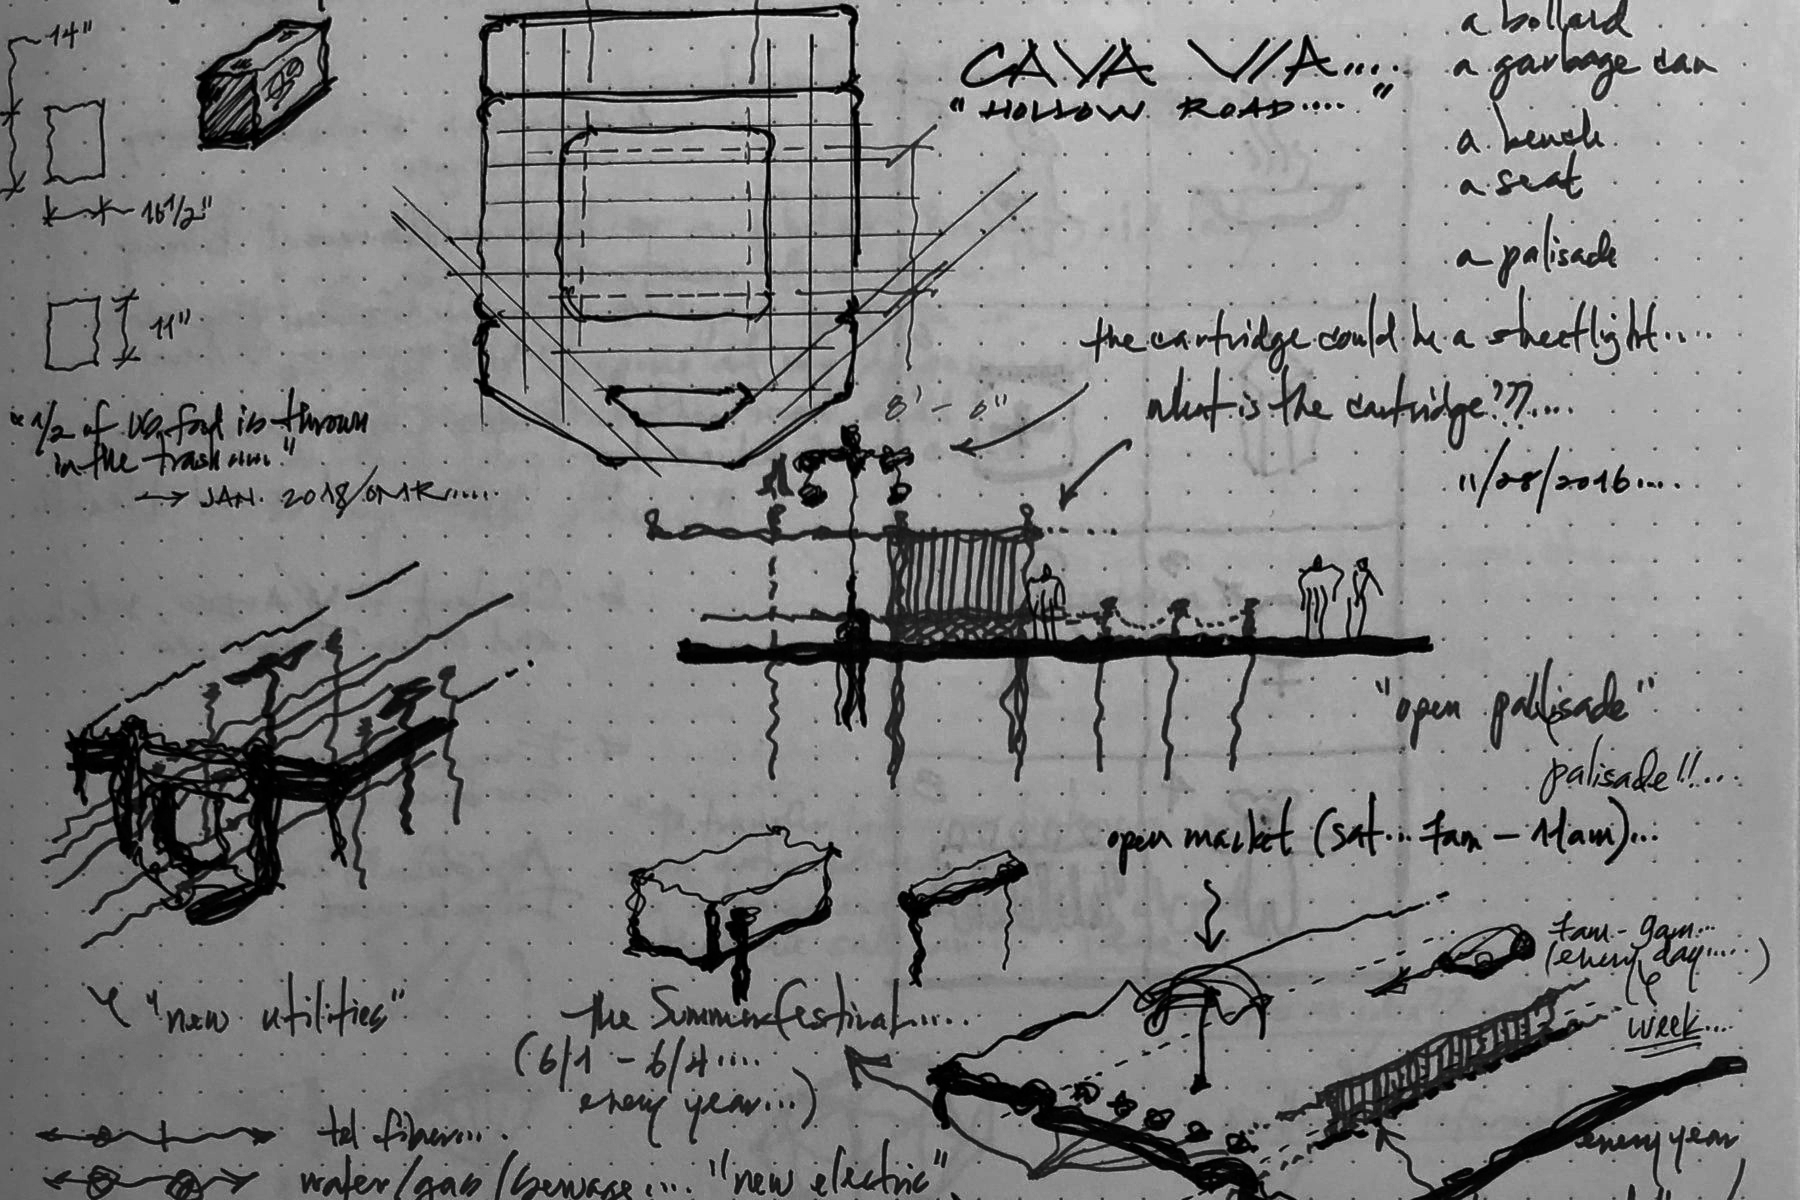 14"
16 1/2"
11"
"1/2 of US food is thrown
in the trash...."
→ JAN. 2018/OMR.....
CAVA VIA....
"HOLLOW ROAD...."
a bollard
a garbage can
a bench
a seat
a palisade
the cartridge could be a streetlight....
what is the cartridge???....
11/28/2016....
8'-0"
"open pallisade"
palisade!!...
open market (sat... 7am - 11am)...
7am-9am...
(every day.....)
week....
"new utilities"
the Summerfestival....
(6/1 - 6/4....
every year...)
tel fiber....
water/gas/sewage.... "new electric"
every year